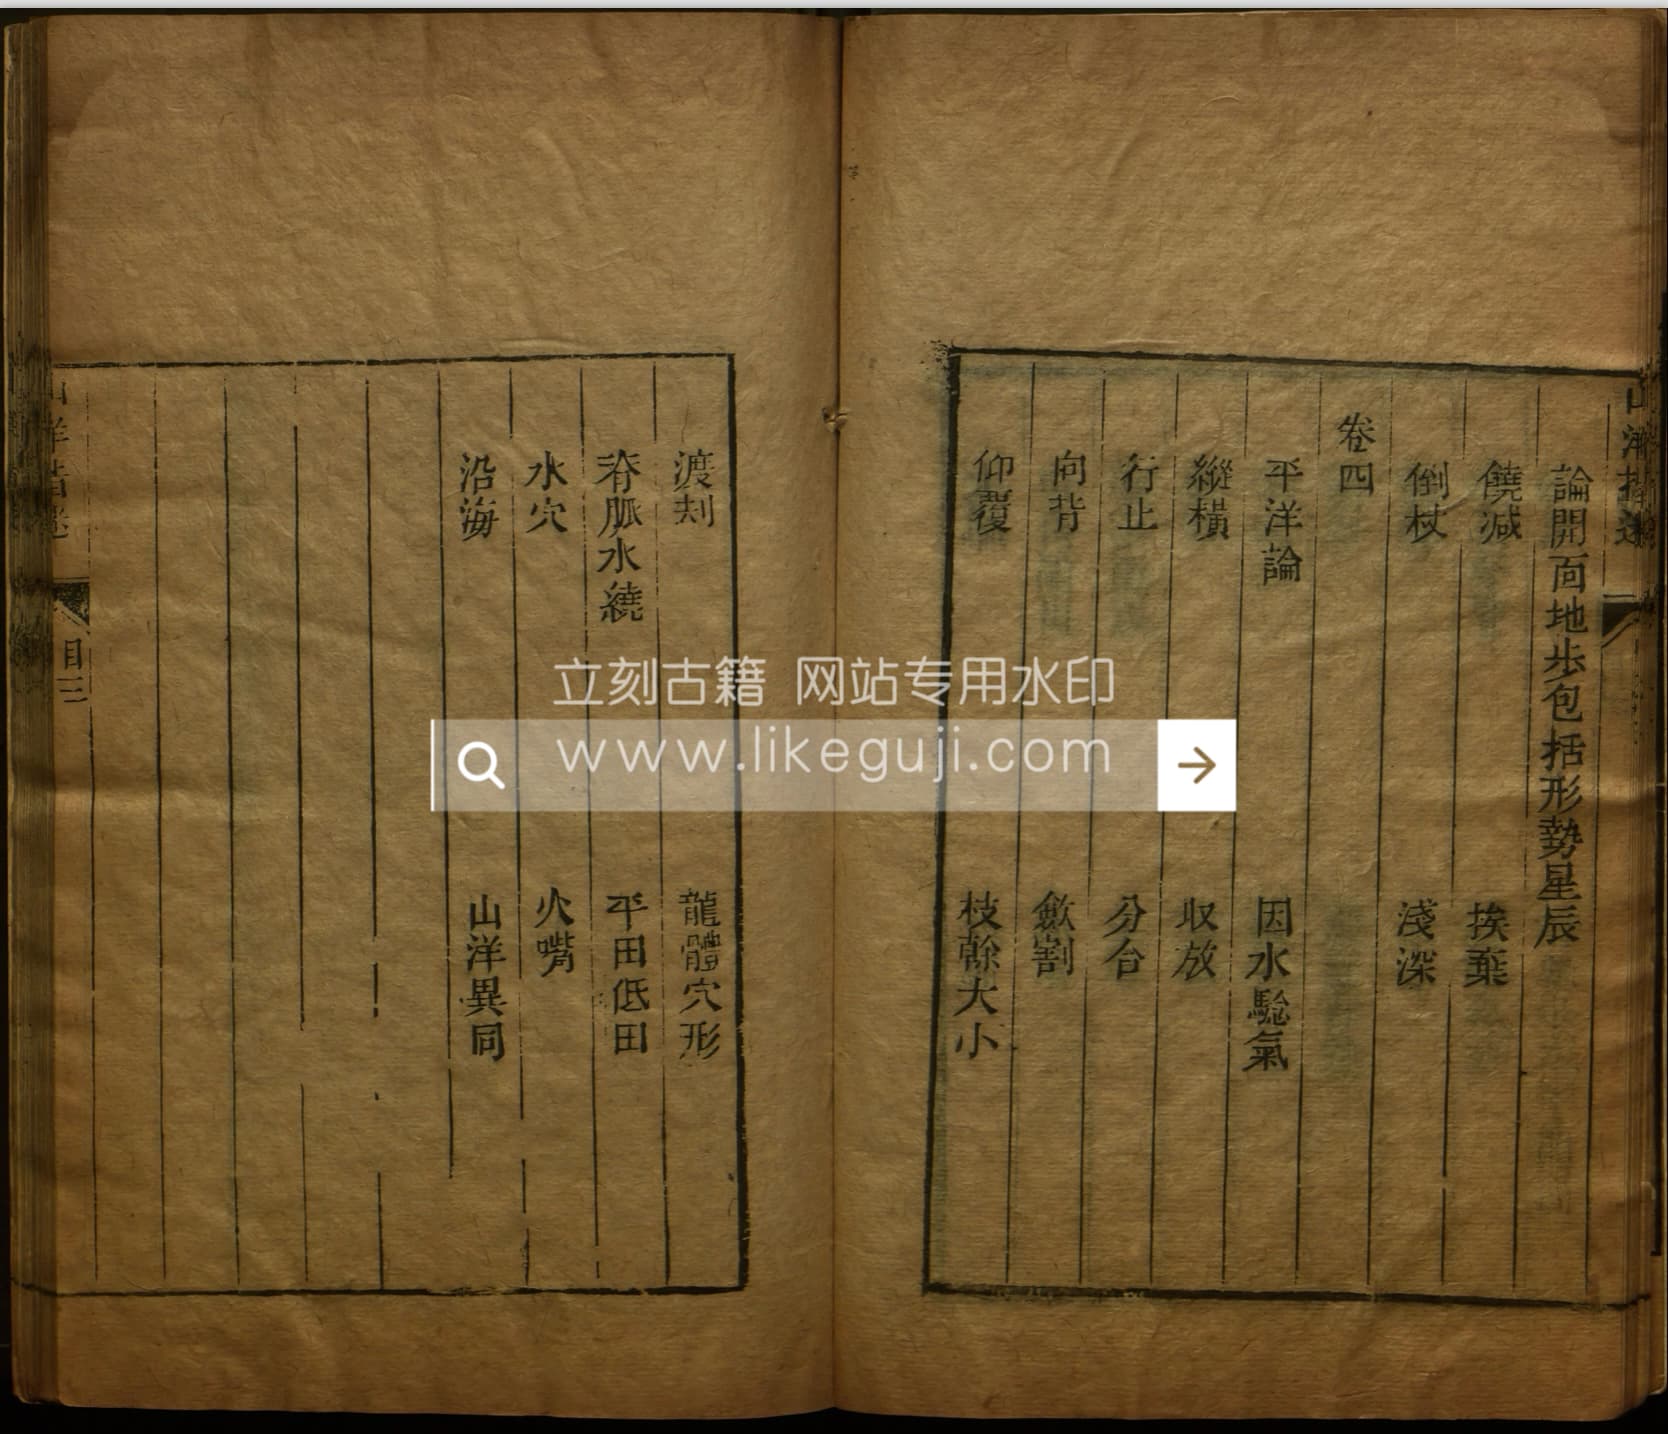 山洋指迷
論開面地步包括形勢星辰
饒減　挨棄
倒杖　淺深
卷四
平洋論　因水騐氣
縱橫　収放
行止　分合
向背　歛割
仰覆　枝榦大小
渡刦　龍體穴形
脊脈水繞　平田低田
水穴　火嘴
沿海　山洋異同
山洋指迷　目三
立刻古籍 网站专用水印
www.likeguji.com